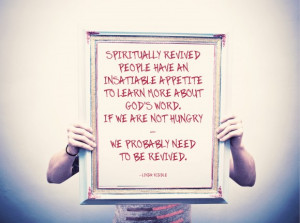 SPIRITUALLY REVIVED
PEOPLE HAVE AN
INSATIABLE APPETITE
TO LEARN MORE ABOUT
GOD'S WORD.
IF WE ARE NOT HUNGRY
—
WE PROBABLY NEED
TO BE REVIVED.